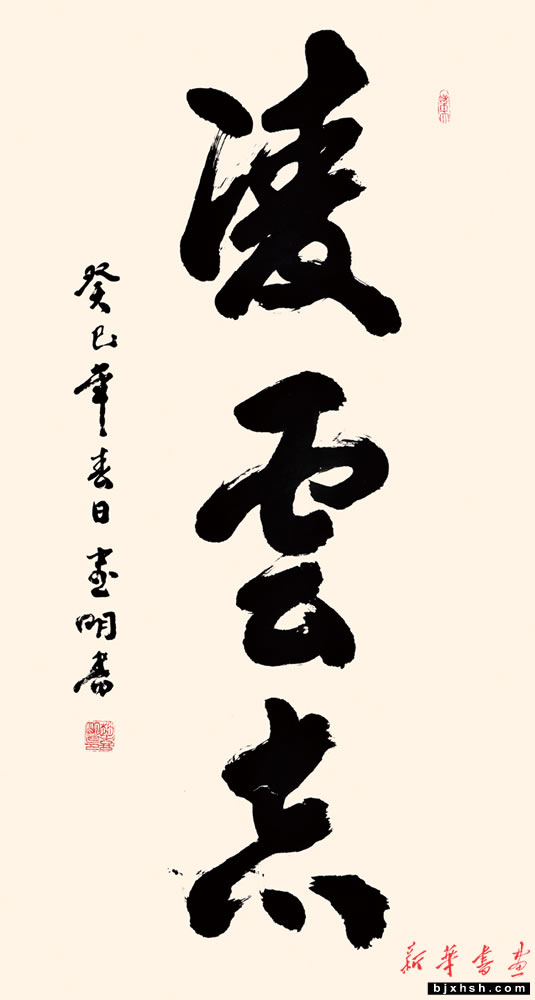 凌雲志
癸巳年春日憲明書
新華書畫
bjxhsh.com